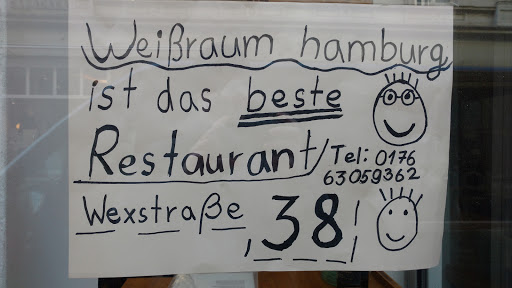 Weißraum hamburg
ist das beste
Restaurant/ Tel: 0176
63059362
Wexstraße 38